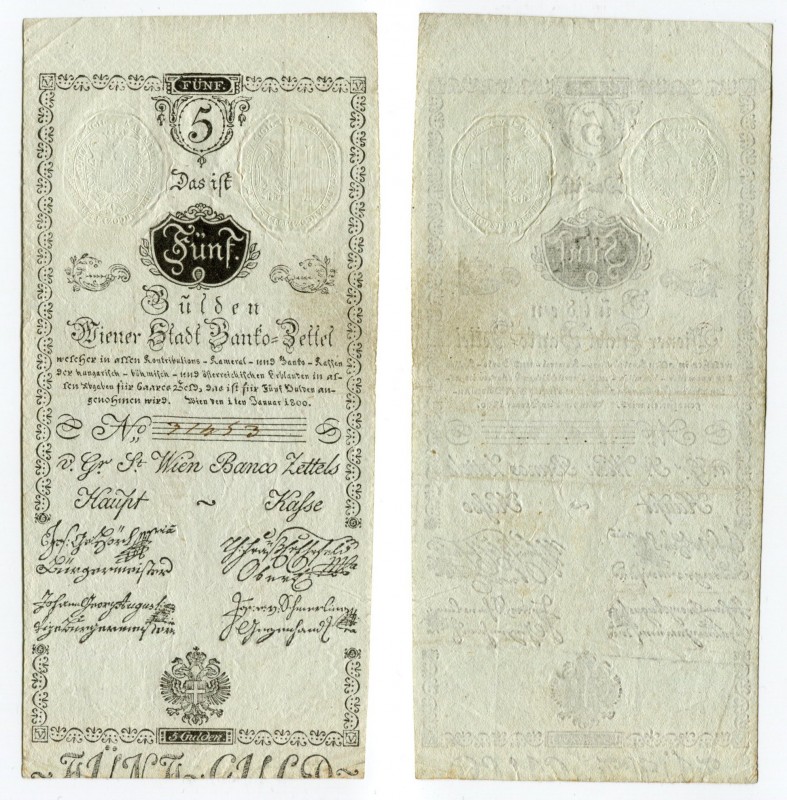 FÜNF.
5
Das ist
Fünf.
Gulden
Wiener Stadt Banko=Zettel
welcher in allen Kontributions - Kameral - und Banko - Kassen
der hungarisch - böhmisch - und österreichischen Erblanden in al-
len Abgaben für baares Geld, das ist für Fünf Gulden an-
genohmen wird. Wien den 1ten Januar 1800.
No 31453
v. Gr St. Wien Banco Zettels
Haupt ~ Kasse
Bürgermeister
Johann Georg Augusti
Vizebürgermeister
Gegenhandl
5 Gulden.
~ FÜNF GULD